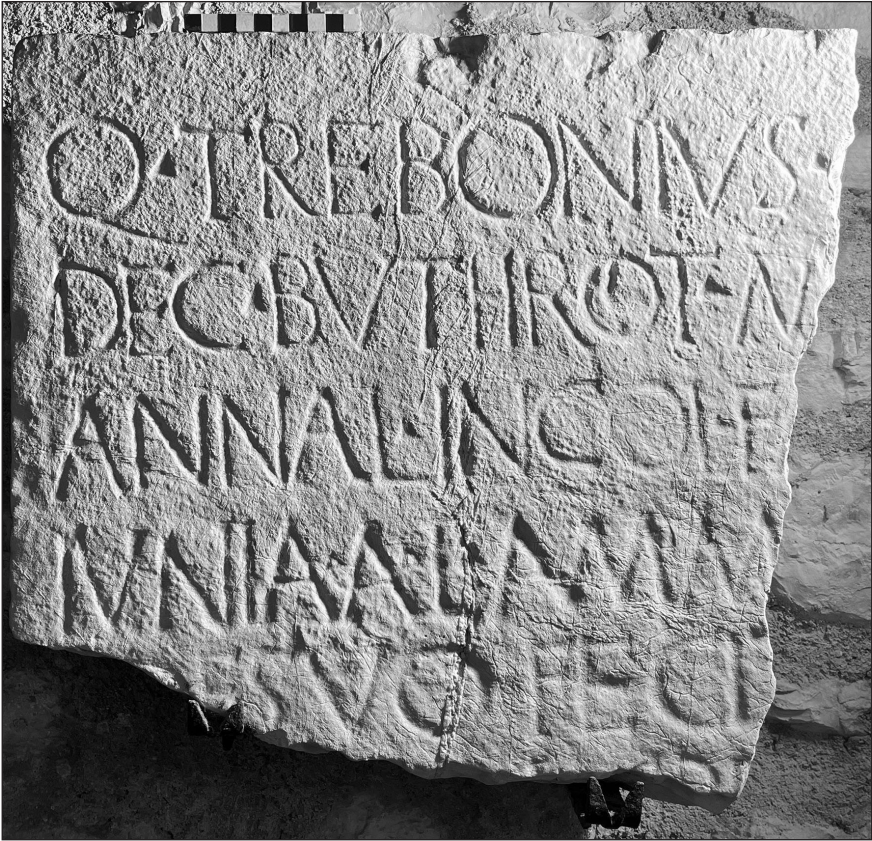 Q·TREBONIVS·
DEC BVTHROT·N
ANNAL·INCOLE
IVNIA A L A
SVO FECI